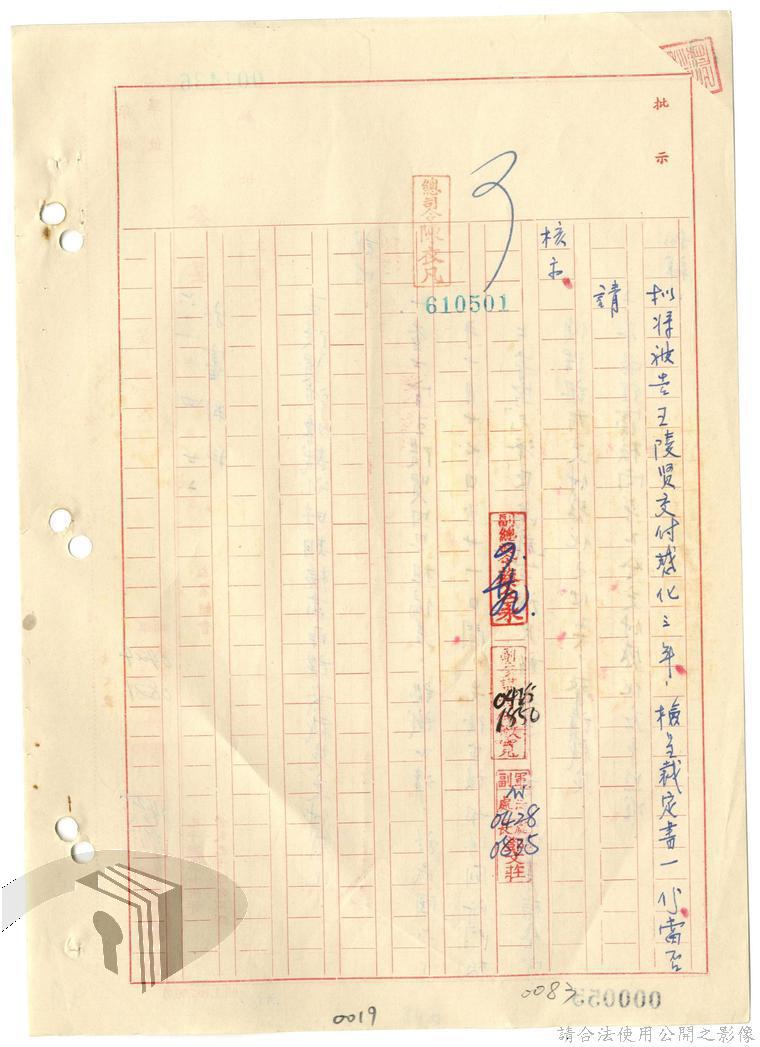 批示
擬將被告王陵賢交付感化三年，檢呈裁定書一份當否
請
核示
可
總司令陳衣凡
610501
副總司令
0425
1550
軍法處
副處長
0428
0835
0083
0019
000055
請合法使用公開之影像